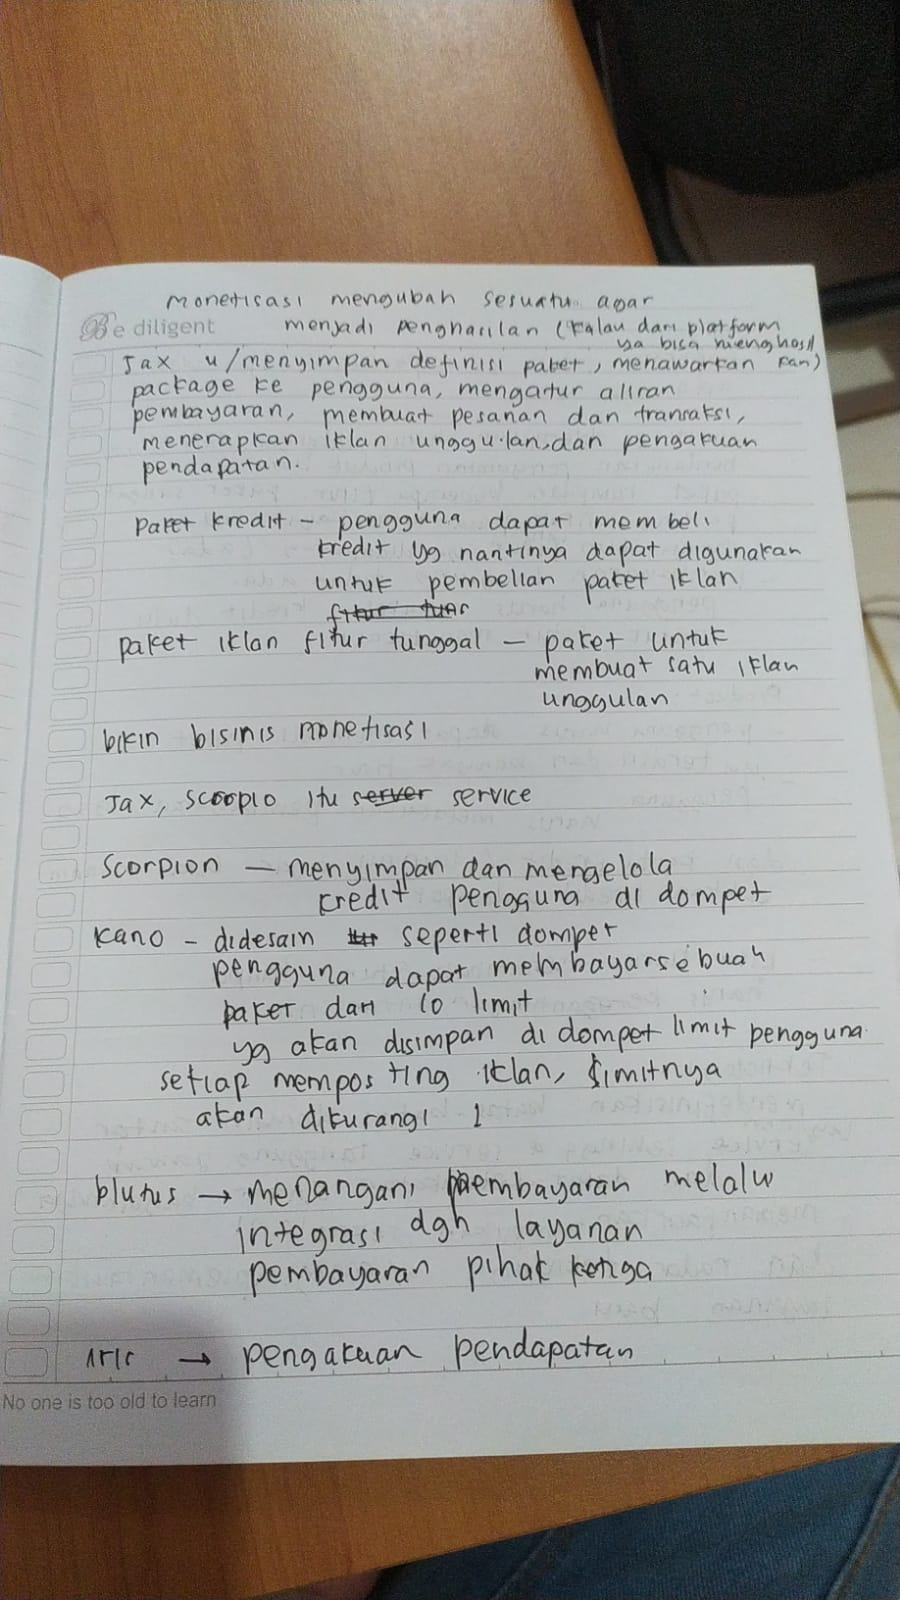 Monetisasi mengubah sesuatu agar
Be diligent
menjadi penghasilan (kalau dari platform
ya bisa menghasil
kan)
Jax u/menyimpan definisi paket, menawarkan
package ke pengguna, mengatur aliran
pembayaran, membuat pesanan dan transaksi,
menerapkan iklan unggulan, dan pengakuan
pendapatan.
Paket kredit - pengguna dapat membeli
kredit yg nantinya dapat digunakan
untuk pembelian paket iklan
fitur
paket iklan fitur tunggal - paket untuk
membuat satu iklan
unggulan
bikin bisinis monetisasi
Jax, scoopio itu server service
Scorpion - menyimpan dan mengelola
kredit pengguna di dompet
Kano - didesain seperti dompet
pengguna dapat membayar sebuah
paket dari 10 limit
yg akan disimpan di dompet limit pengguna.
setiap memposting iklan, limitnya
akan dikurangi 1
plutus → menangani pembayaran melalui
integrasi dgn layanan
pembayaran pihak ketiga
→ pengakuan pendapatan
No one is too old to learn